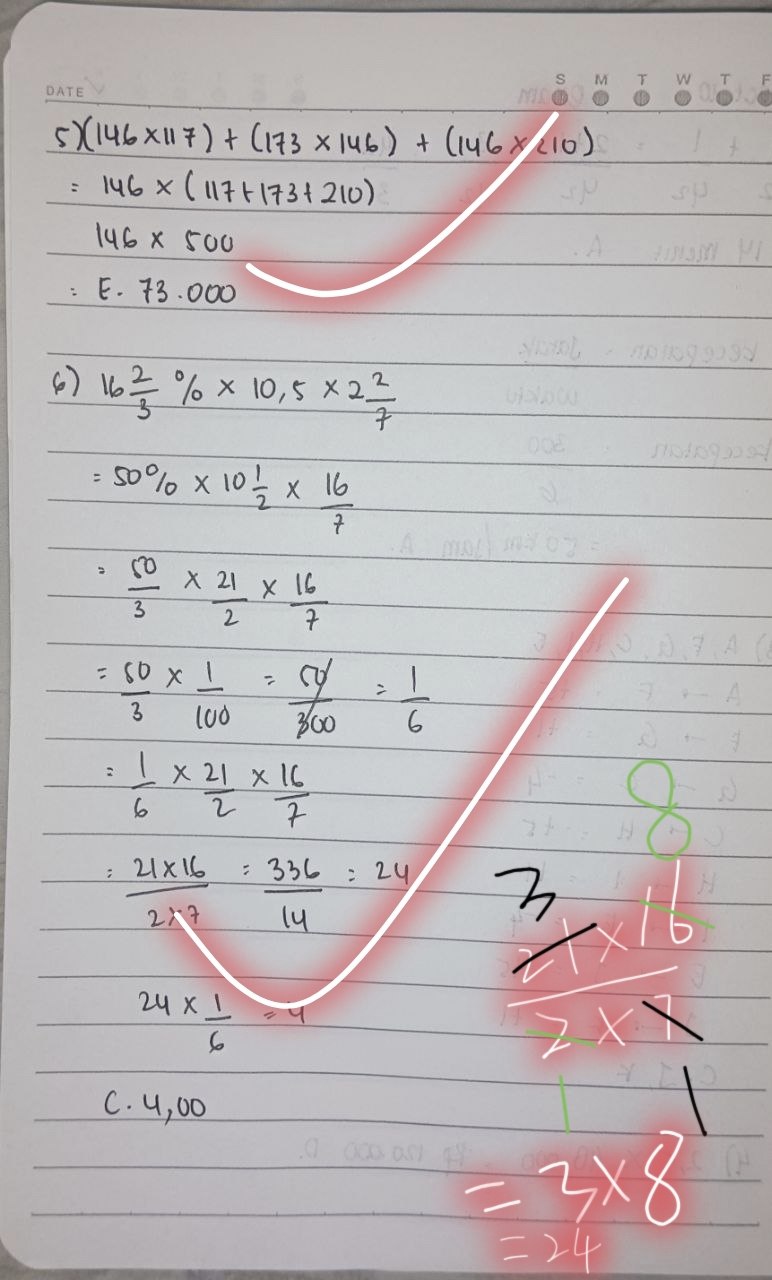 DATE
S M T W T F
5) (146 × 117) + (173 × 146) + (146 × 210)
= 146 × (117 + 173 + 210)
146 × 500
= E. 73.000
6) 16 2/3 % × 10,5 × 2 2/7
= 50% × 10 1/2 × 16/7
= 50/3 × 21/2 × 16/7
= 50/3 × 1/100 = 50/300 = 1/6
= 1/6 × 21/2 × 16/7
= 21×16/2×7 = 336/14 = 24
24 × 1/6 = 4
C. 4,00
3 8
21 × 16
2 × 7
1 1
= 3 × 8
= 24